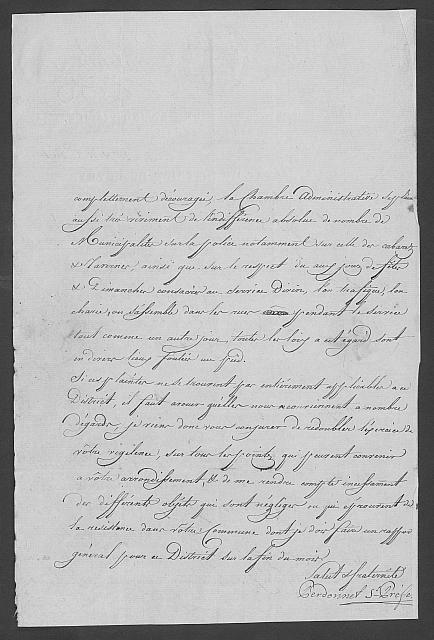 complettement découragé, la Chambre Administrative se plaint
aussi très vivement de l'indifférence absolue de nombre de
Municipalité sur la police notamment sur celle des cabarets
& Tavernes, ainsi que sur le respect du aux jours de fêtes
& Dimanches consacrés au Service Divin, l'on trafique, l'on
chasse, on s'assemble dans les rues pendant le service
tout comme un autre jour, toutes les loix a cet égard sont
in divers lieux foulées au pied.
Si ces plaintes ne se trouvent pas entièrement applicables a ce
District, il faut avouer qu'elles nous conviennent a nombre
d'égards, je viens donc vous conjurer de redoubler l'éxercice de
vôtre vigilence, sur tous les points qui peuvent convenir
a vôtre arrondissement, & de me rendre compte incessament
des différents objets qui sont négligés ou qui éprouvent de
la resistance dans vôtre Commune dont je dois faire un rapport
général pour ce District sur la fin du mois
Salut & fraternité
Perdonnet Ss Préfet